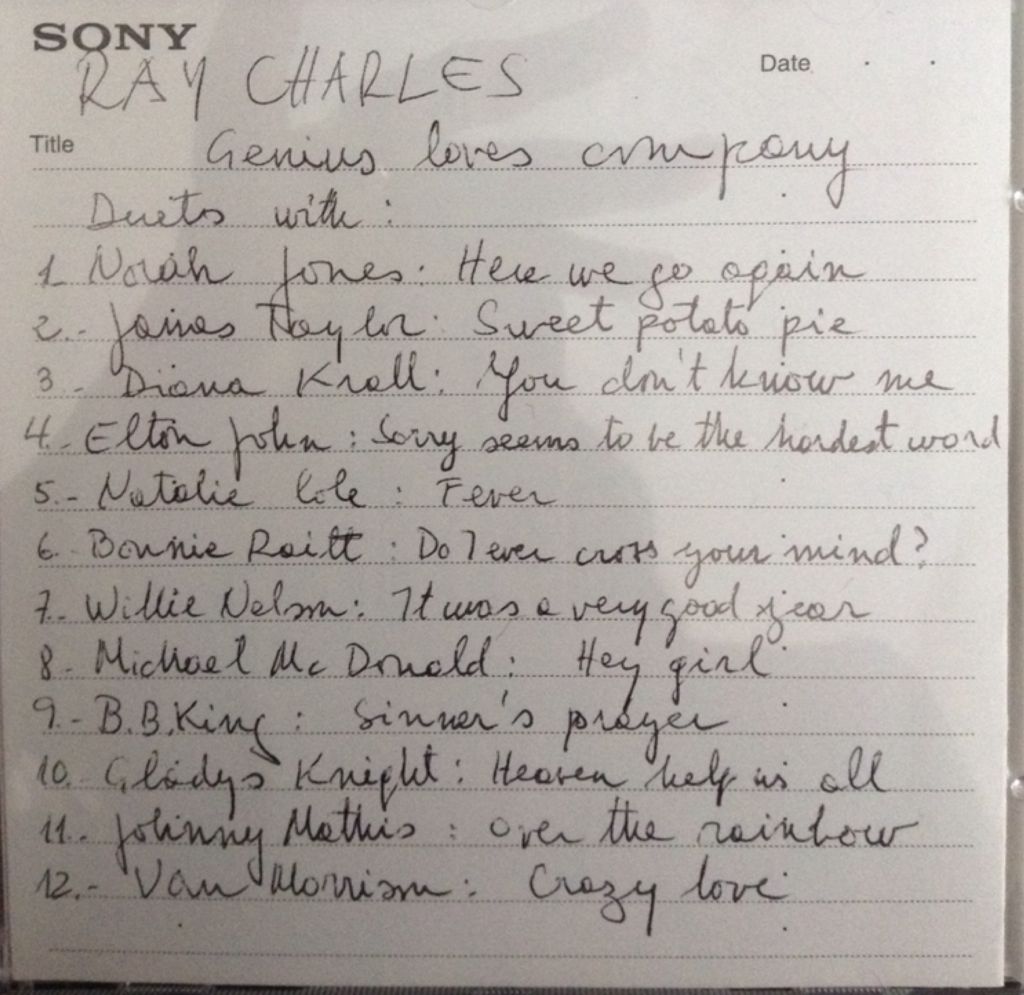 SONY
RAY CHARLES
Date . .
Title Genius loves company
Duets with :
1. Norah Jones: Here we go again
2.- James Taylor: Sweet potato pie
3.- Diana Krall: You don't know me
4.- Elton John : Sorry seems to be the hardest word
5.- Natalie Cole : Fever
6.- Bonnie Raitt : Do I ever cross your mind?
7.- Willie Nelson: It was a very good year
8.- Michael Mc Donald: Hey girl
9.- B.B.King : Sinner's prayer
10.- Gladys Knight: Heaven help us all
11.- Johnny Mathis : Over the rainbow
12.- Van Morrison: Crazy love